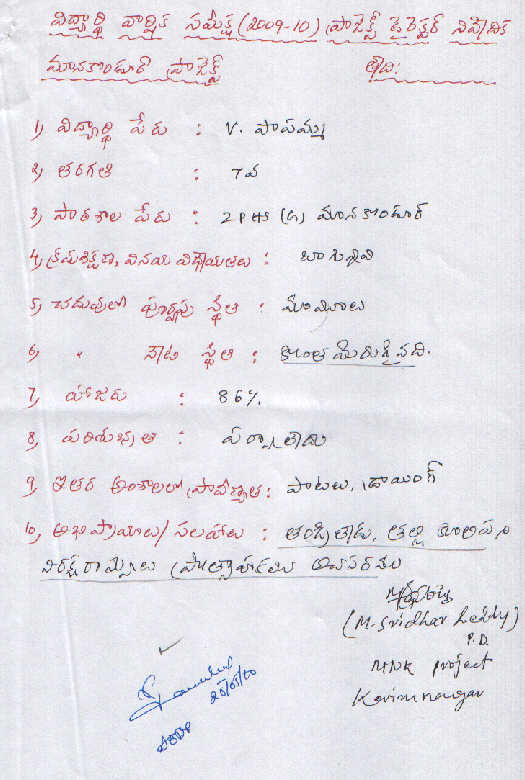 విద్యార్థి వార్షిక సమీక్ష (2009-10) ప్రాజెక్ట్ డైరెక్టర్ నివేదిక
మానకొండూర్ ప్రాజెక్ట్ తేది:
1) విద్యార్థి పేరు : V. పాపమ్మ
2) తరగతి : 7వ
3) పాఠశాల పేరు : ZPHS (G) మానకొండూర్
4) క్రమశిక్షణ, వినయ విధేయతలు : బాగున్నవి
5) చదువులో పూర్వపు స్థితి :
6) " నేటి స్థితి : కొంత మెరుగైనది.
7) హాజరు : 86%
8) పరిశుభ్రత : పర్వాలేదు
9) ఇతర అంశాలలో ప్రావీణ్యత : పాటలు, డ్రాయింగ్
10) అభిప్రాయాలు/సలహాలు : తండ్రిలేడు, తల్లి కూలిపని
ప్రోత్సాహం అవసరం
(M. Sridhar Reddy)
P.D.
MNK project
Karimnagar